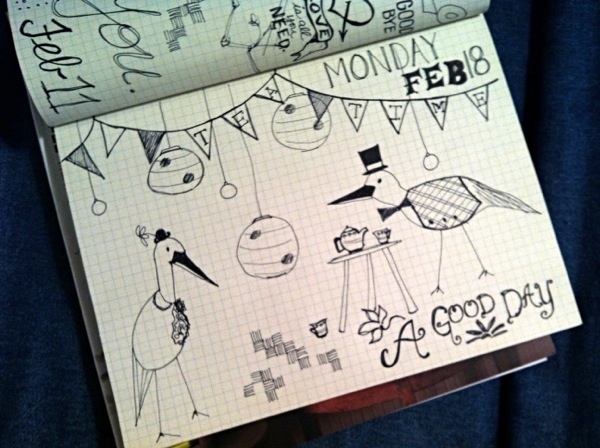 Feb 11
you.
LOVE
is all
you
NEED.
GOOD
BYE
MONDAY
FEB 18
TEA TIME
A GOOD DAY